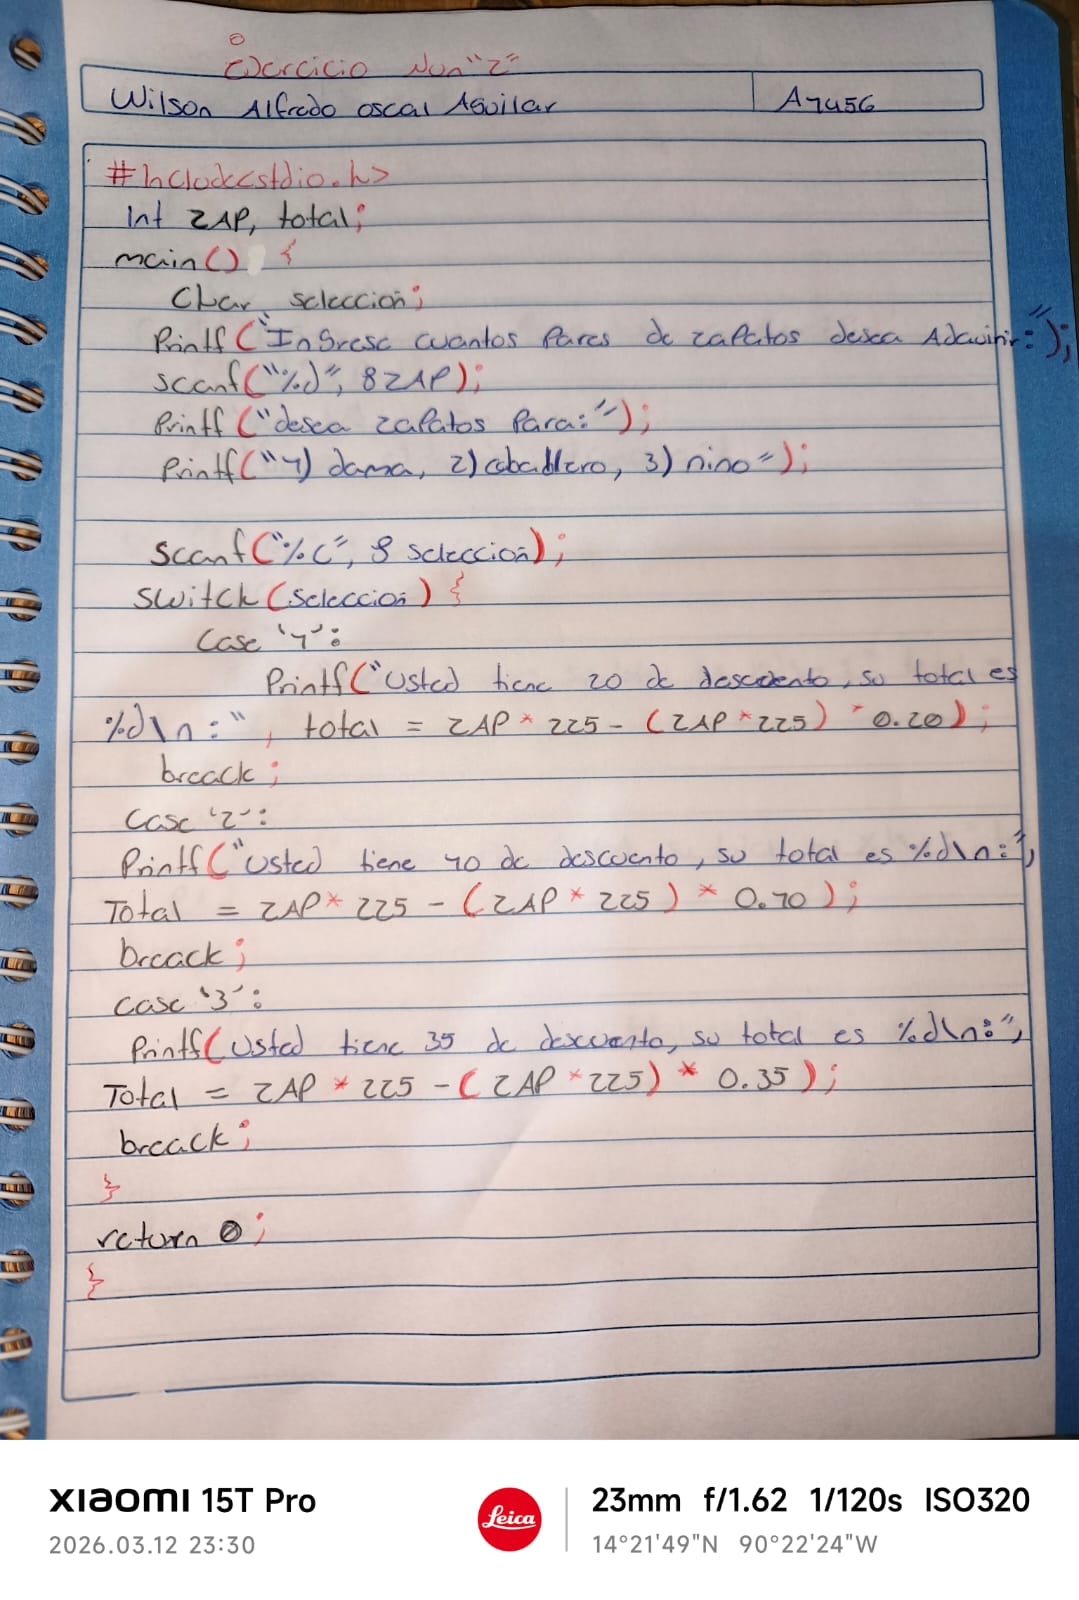 Ejercicio Num "2"
Wilson Alfredo oscal Aguilar
A1456
#include<stdio.h>
Int ZAP, total;
main() {
Char seleccion;
Printf ("Ingrese cuantos Pares de zapatos desea Adquirir:");
scanf("%d", &ZAP);
Printf ("desea zapatos Para:");
Printf("1) dama, 2) caballero, 3) nino");
scanf("%c", & seleccion);
switch (seleccion) {
Case '1':
Printf("Usted tiene 20 de descuento, su total es
%d\n:", total = ZAP * 225 - (ZAP * 225) * 0.20);
breack;
Case '2':
Printf("Usted tiene 10 de descuento, su total es %d\n:",
Total = ZAP * 225 - (ZAP * 225) * 0.10);
breack;
case '3':
Printf(Usted tiene 35 de descuento, su total es %d\n:",
Total = ZAP * 225 - (ZAP * 225) * 0.35);
breack;
}
return 0;
}
xiaomi 15T Pro
2026.03.12 23:30
Leica
23mm f/1.62 1/120s ISO320
14°21'49"N 90°22'24"W